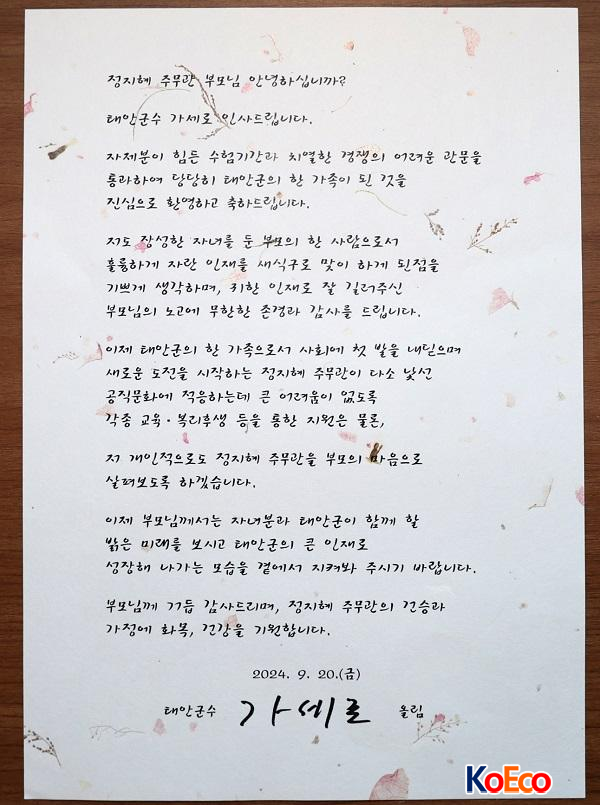 정지혜 주무관 부모님 안녕하십니까?
태안군수 가세로 인사드립니다.
자제분이 힘든 수험기간과 치열한 경쟁의 어려운 관문을
통과하여 당당히 태안군의 한 가족이 된 것을
진심으로 환영하고 축하드립니다.
저도 장성한 자녀를 둔 부모의 한 사람으로서
훌륭하게 자란 인재를 새식구로 맞이 하게 된점을
기쁘게 생각하며, 귀한 인재로 잘 길러주신
부모님의 노고에 무한한 존경과 감사를 드립니다.
이제 태안군의 한 가족으로서 사회에 첫 발을 내딛으며
새로운 도전을 시작하는 정지혜 주무관이 다소 낯선
공직문화에 적응하는데 큰 어려움이 없도록
각종 교육·복리후생 등을 통한 지원은 물론,
저 개인적으로도 정지혜 주무관을 부모의 마음으로
살펴보도록 하겠습니다.
이제 부모님께서는 자녀분과 태안군이 함께 할
밝은 미래를 보시고 태안군의 큰 인재로
성장해 나가는 모습을 곁에서 지켜봐 주시기 바랍니다.
부모님께 거듭 감사드리며, 정지혜 주무관의 건승과
가정에 화목, 건강을 기원합니다.
2024. 9. 20.(금)
태안군수 가세로 올림
KoEco